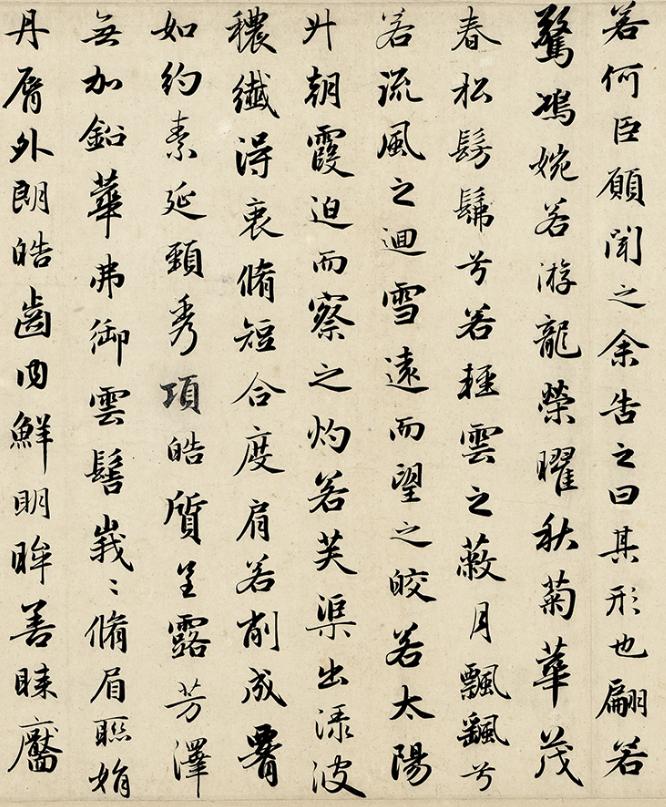 若何臣願聞之余告之曰其形也翩若
驚鴻婉若游龍榮曜秋菊華茂
春松髣髴兮若輕雲之蔽月飄飖兮
若流風之迴雪遠而望之皎若太陽
升朝霞迫而察之灼若芙渠出淥波
穠纖得衷脩短合度肩若削成腰
如約素延頸秀項皓質呈露芳澤
無加鉛華弗御雲髻峩〻脩眉聯娟
丹脣外朗皓齒内鮮明眸善睞靨